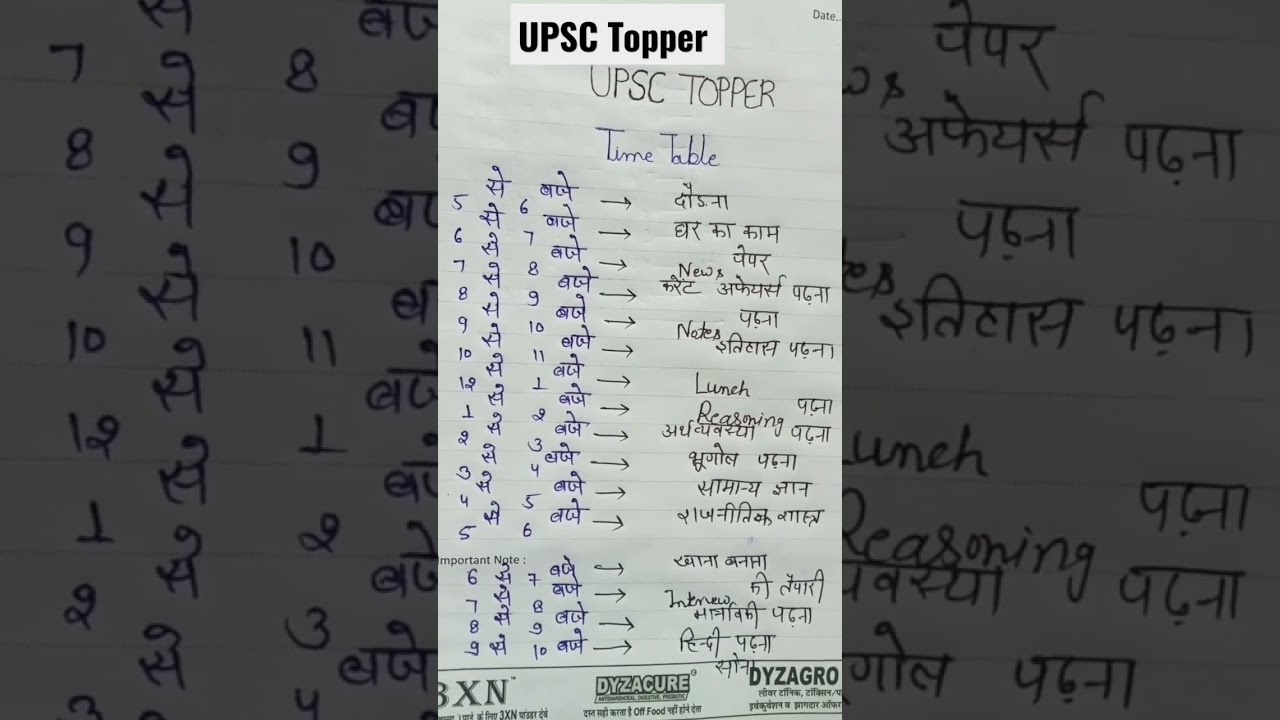 UPSC Topper
Date..
UPSC TOPPER
Time Table
5 से 6 बजे → दौडना
6 से 7 बजे → घर का काम
7 से 8 बजे → News पेपर
8 से 9 बजे → करेंट अफेयर्स पढ़ना
9 से 10 बजे → Notes पढ़ना
10 से 11 बजे → इतिहास पढ़ना
1२ से 1 बजे → Lunch
1 से २ बजे → Reasoning पढ़ना
२ से 3 बजे → अर्थव्यवस्था पढ़ना
3 से 4 बजे → भूगोल पढ़ना
4 से 5 बजे → सामान्य ज्ञान
5 से 6 बजे → राजनीतिक शास्त्र
Important Note :
6 से 7 बजे → खाना बनाना
7 से 8 बजे → की तैयारी
8 से 9 बजे → पढ़ना
9 से 10 बजे → हिन्दी पढ़ना
सोना
3XN™ DYZACURE® DYZAGRO
के लिए 3XN पाउडर देवे दस्त सही करता है Off Food नहीं होने देता लीवर टॉनिक, टॉक्सिन